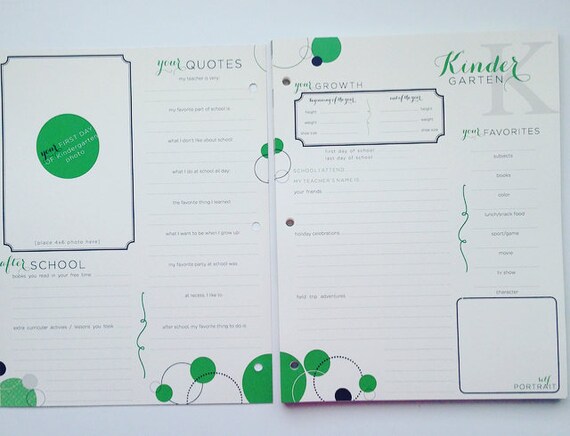 your FIRST DAY
OF Kindergarten
photo
[place 4x6 photo here]
after SCHOOL
books you read in your free time
extra curricular activities / lessons you took
your QUOTES
my teacher is very:
my favorite part of school is:
what I don't like about school:
what I do at school all day:
the favorite thing I learned:
what I want to be when I grow up:
my favorite party at school was:
at recess I like to:
after school, my favorite thing to do is:
K
Kinder
GARTEN
your GROWTH
beginning of the year
end of the year
height
height
weight
weight
shoe size
shoe size
first day of school
last day of school
SCHOOL I ATTEND
MY TEACHER'S NAME IS
your friends
holiday celebrations
field trip adventures
your FAVORITES
subjects
books
color
lunch/snack food
sport/game
movie
tv show
character
self
PORTRAIT